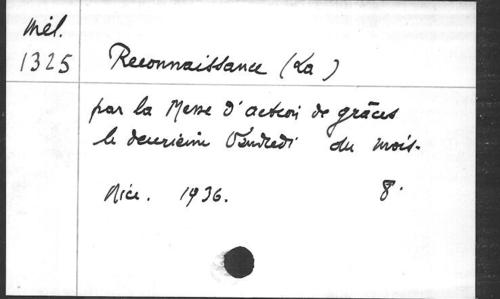 Mél.
1325
Reconnaissance (La)
par la Messe d'action de grâces
le deuxième Vendredi du mois.
Nice. 1936. 8°